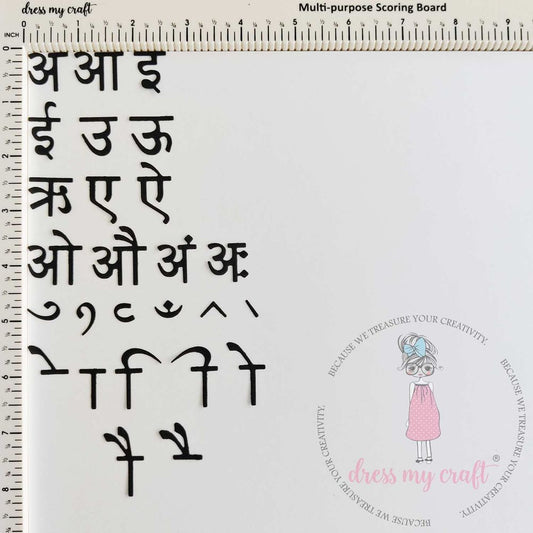 dress my craft Multi-purpose Scoring Board
0 1 2 3 4 5 6 7 8 9
INCH
0
1
2
3
4
5
6
7
8
अ आ इ
ई उ ऊ
ऋ ए ऐ
ओ औ अं अः
ु ू ृ ँ
े ा ि ी ो
ौ ै
BECAUSE WE TREASURE YOUR CREATIVITY.
BECAUSE WE TREASURE YOUR CREATIVITY.
BECAUSE WE TREASURE YOUR CREATIVITY.
dress my craft®